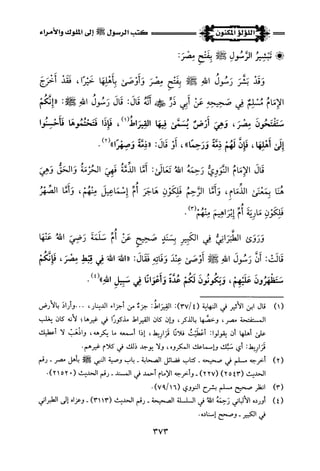 اللؤلؤ المكنون
كتب الرسول ﷺ إلى الملوك والأمراء
تَبْشِيرُ الرَّسُولِ ﷺ بِفَتْحِ مِصْرَ:
وَقَدْ بَشَّرَ رَسُولُ اللهِ ﷺ بِفَتْحِ مِصْرَ وَأَوْصَى بِأَهْلِهَا خَيْرًا، فَقَدْ أَخْرَجَ
الإِمَامُ مُسْلِمٌ فِي صَحِيحِهِ عَنْ أَبِي ذَرٍّ ﷺ أَنَّهُ قَالَ: قَالَ رَسُولُ اللهِ ﷺ: «إِنَّكُمْ
سَتَفْتَحُونَ مِصْرَ، وَهِيَ أَرْضٌ يُسَمَّى فِيهَا القِيرَاطُ(١)، فَإِذَا فَتَحْتُمُوهَا فَأَحْسِنُوا
إِلَى أَهْلِهَا، فَإِنَّ لَهُمْ ذِمَّةً وَرَحِمًا»، أَوْ قَالَ: «ذِمَّةً وَصِهْرًا»(٢).
قَالَ الإِمَامُ النَّوَوِيُّ رَحِمَهُ اللهُ تَعَالَى: أَمَّا الذِّمَّةُ فَهِيَ الحُرْمَةُ وَالحَقُّ وَهِيَ
هُنَا بِمَعْنَى الذِّمَامِ، وَأَمَّا الرَّحِمُ فَلِكَوْنِ هَاجَرَ أُمِّ إِسْمَاعِيلَ مِنْهُمْ، وَأَمَّا الصِّهْرُ
فَلِكَوْنِ مَارِيَةَ أُمِّ إِبْرَاهِيمَ مِنْهُمْ(٣).
وَرَوَى الطَّبَرَانِيُّ فِي الكَبِيرِ بِسَنَدٍ صَحِيحٍ عَنْ أُمِّ سَلَمَةَ رَضِيَ اللهُ عَنْهَا
قَالَتْ: أَنَّ رَسُولَ اللهِ ﷺ أَوْصَى عِنْدَ وَفَاتِهِ فَقَالَ: «اللهَ اللهَ فِي قِبْطِ مِصْرَ، فَإِنَّكُمْ
سَتَظْهَرُونَ عَلَيْهِمْ، وَيَكُونُونَ لَكُمْ عُدَّةً وَأَعْوَانًا فِي سَبِيلِ اللهِ»(٤).
(١) قال ابن الأثير في النهاية (٣٧/٤): القِيرَاطُ: جزءٌ من أجزاء الدينار، ...وأرادَ بالأرض
المستفتحة مصر، وخصَّها بالذكر، وإن كان القيراط مذكورًا في غيرها؛ لأنه كان يغلب
على أهلها أن يقولوا: أعْطَيْتُ فلانًا قَرَارِيطَ، إذا أسمعه ما يكرهه، واذْهَبْ لا أعطيك
قَرَارِيطَ: أي سَبَّكَ وإسماعك المكروه، ولا يوجد ذلك في كلام غيرهم.
(٢) أخرجه مسلم في صحيحه ـ كتاب فضائل الصحابة ـ باب وصية النبي ﷺ بأهل مصر ـ رقم
الحديث (٢٥٤٣) (٢٢٧) ـ وأخرجه الإمام أحمد في المسند ـ رقم الحديث (٢١٥٢٠).
(٣) انظر صحيح مسلم بشرح النووي (٧٩/١٦).
(٤) أورده الألباني رَحِمَهُ اللهُ في السلسلة الصحيحة ـ رقم الحديث (٣١١٣) ـ وعزاه إلى الطبراني
في الكبير ـ وصحح إسناده.
٣٧٣